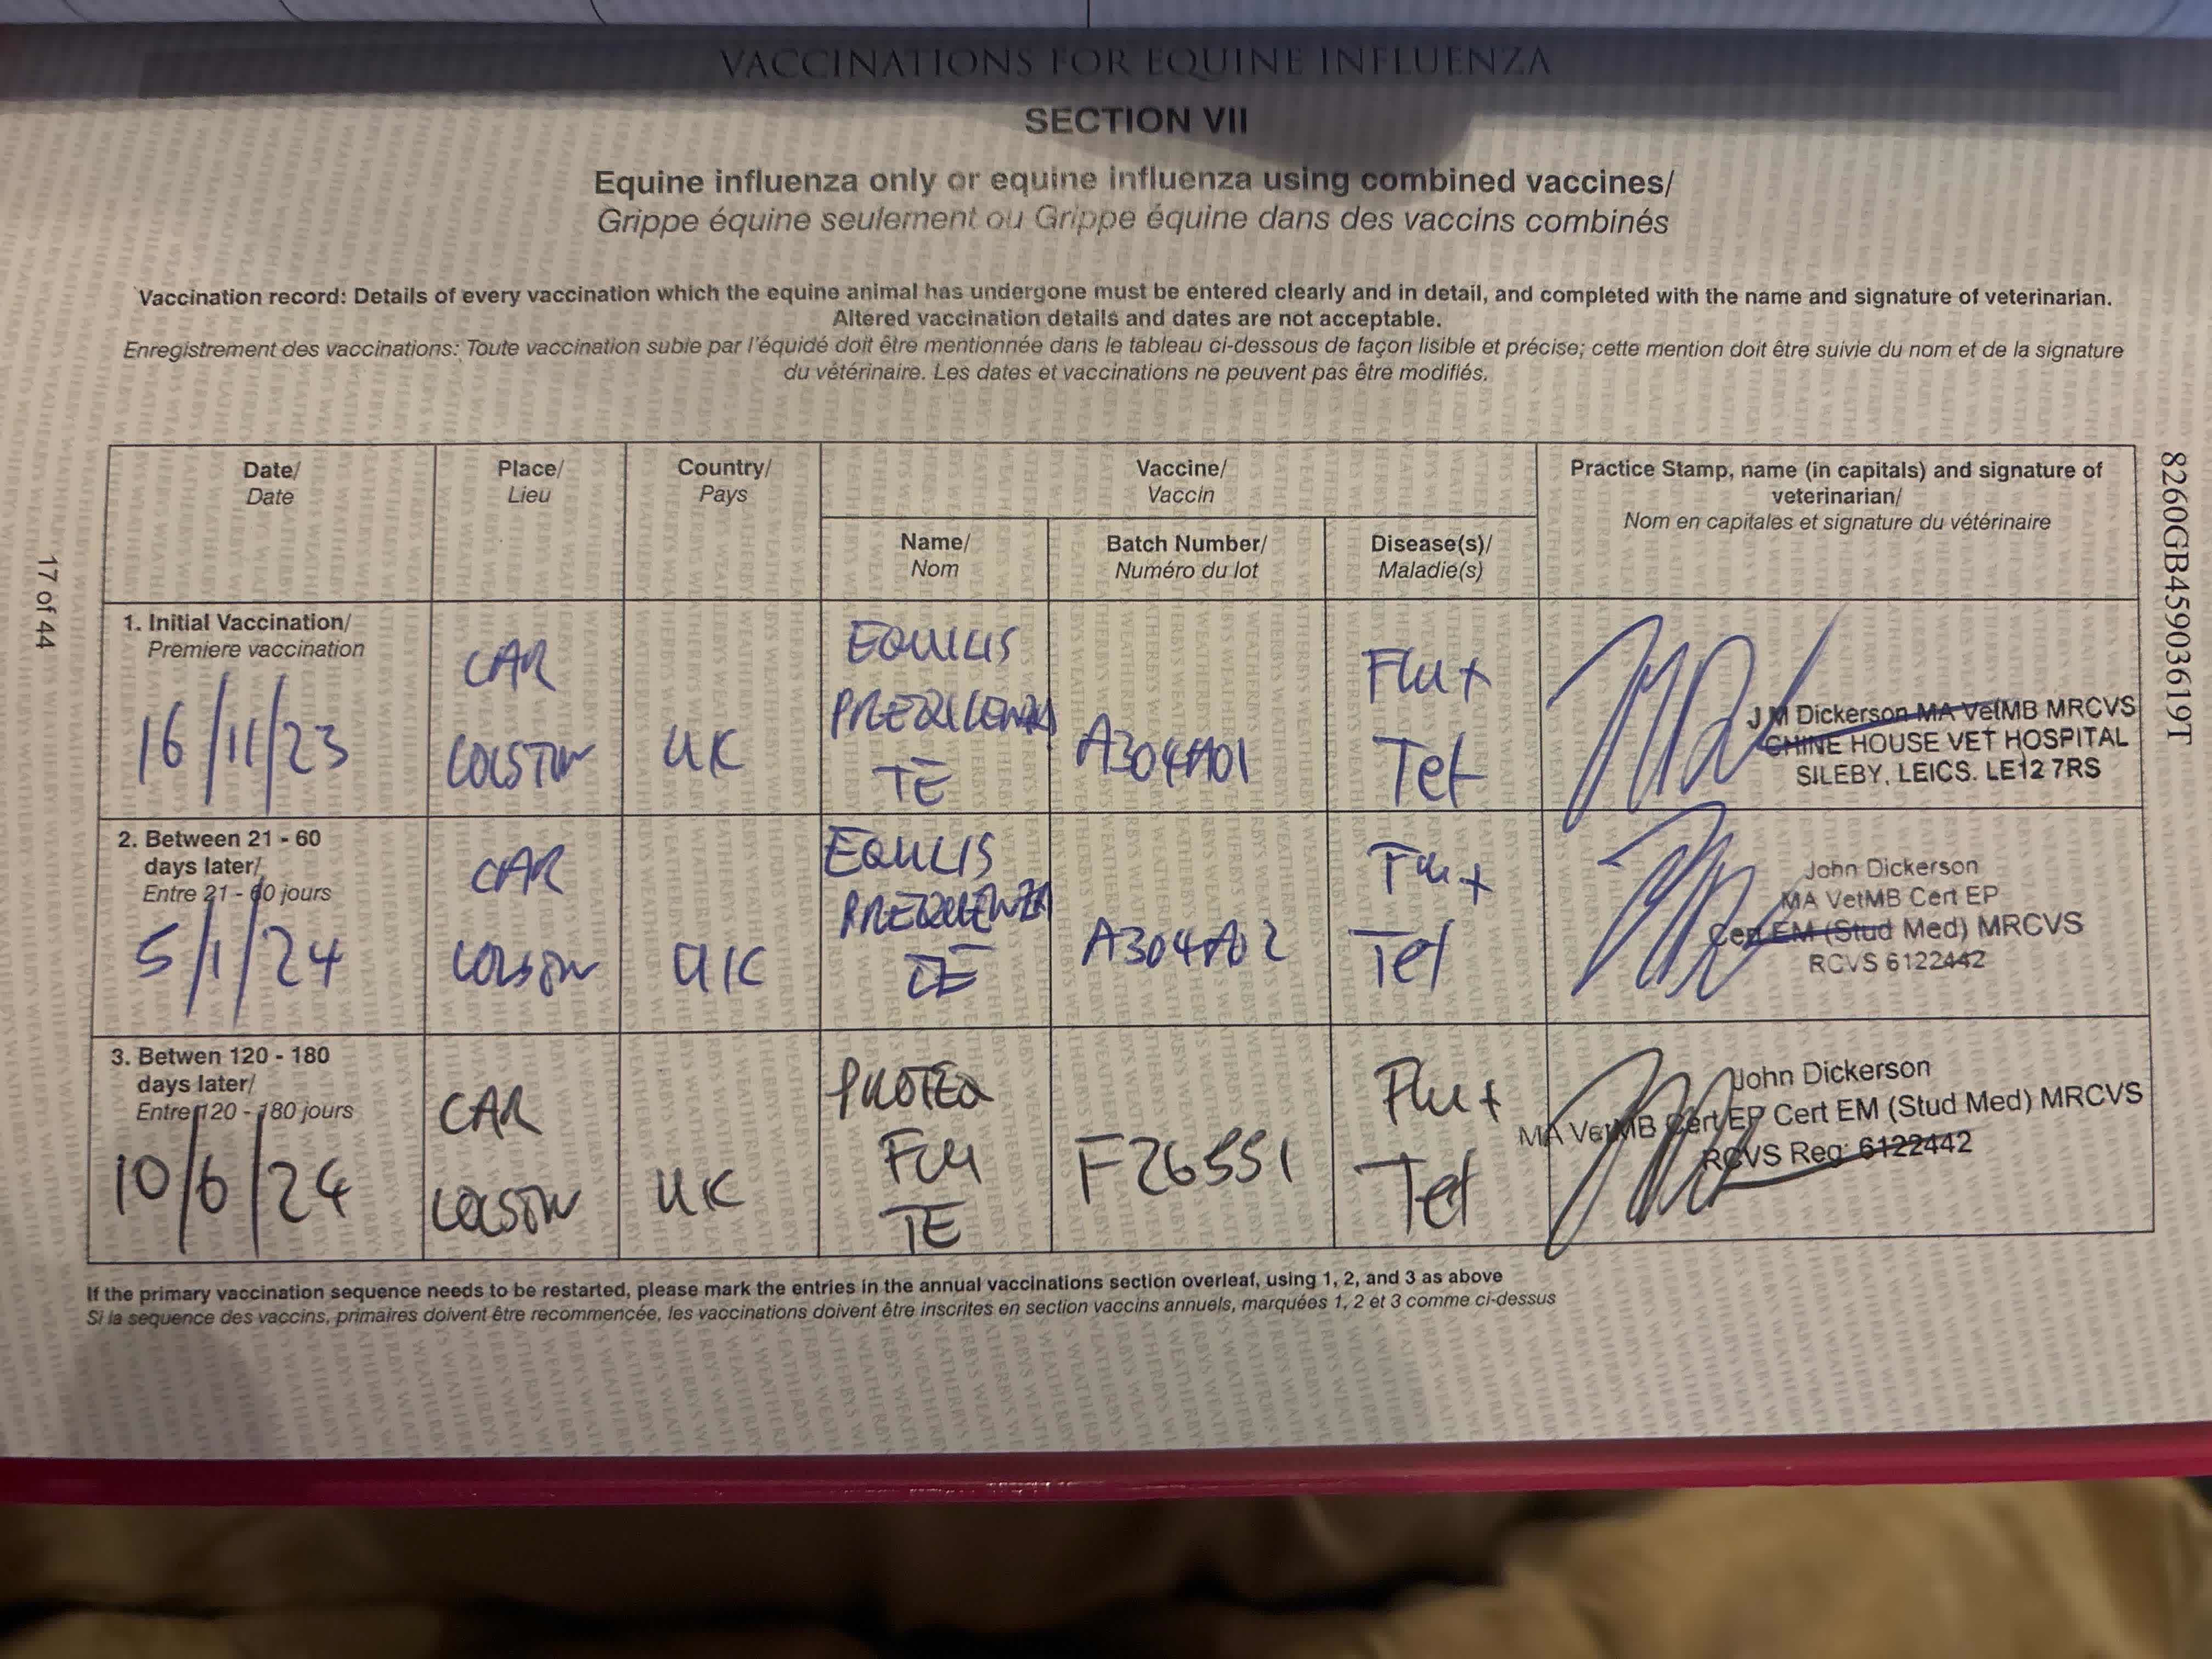 VACCINATIONS FOR EQUINE INFLUENZA
SECTION VII
Equine influenza only or equine influenza using combined vaccines/
Grippe équine seulement ou Grippe équine dans des vaccins combinés
Vaccination record: Details of every vaccination which the equine animal has undergone must be entered clearly and in detail, and completed with the name and signature of veterinarian.
Altered vaccination details and dates are not acceptable.
Enregistrement des vaccinations: Toute vaccination subie par l'équidé doit être mentionnée dans le tableau ci-dessous de façon lisible et précise; cette mention doit être suivie du nom et de la signature
du vétérinaire. Les dates et vaccinations ne peuvent pas être modifiés.
Date/
Date
Place/
Lieu
Country/
Pays
Vaccine/
Vaccin
Name/
Nom
Batch Number/
Numéro du lot
Disease(s)/
Maladie(s)
Practice Stamp, name (in capitals) and signature of
veterinarian/
Nom en capitales et signature du vétérinaire
1. Initial Vaccination/
Premiere vaccination
16/11/23
CAR
COLSTON
UK
EQUILIS
PREQUENZA
TE
A304A01
Flu +
Tet
J M Dickerson MA VetMB MRCVS
CHINE HOUSE VET HOSPITAL
SILEBY, LEICS. LE12 7RS
2. Between 21 - 60
days later/
Entre 21 - 60 jours
5/1/24
CAR
COLSTON
UK
EQUILIS
PREQUENZA
TE
A304A02
Flu +
Tet
John Dickerson
MA VetMB Cert EP
Cert EM (Stud Med) MRCVS
RCVS 6122442
3. Betwen 120 - 180
days later/
Entre 120 - 180 jours
10/6/24
CAR
COLSTON
UK
PROTEQ
FLU
TE
F26551
Flu +
Tet
John Dickerson
MA VetMB Cert EP Cert EM (Stud Med) MRCVS
RCVS Reg: 6122442
If the primary vaccination sequence needs to be restarted, please mark the entries in the annual vaccinations section overleaf, using 1, 2, and 3 as above
Si la sequence des vaccins, primaires doivent être recommencée, les vaccinations doivent être inscrites en section vaccins annuels, marquées 1, 2 et 3 comme ci-dessus
17 of 44
8260GB45903619T